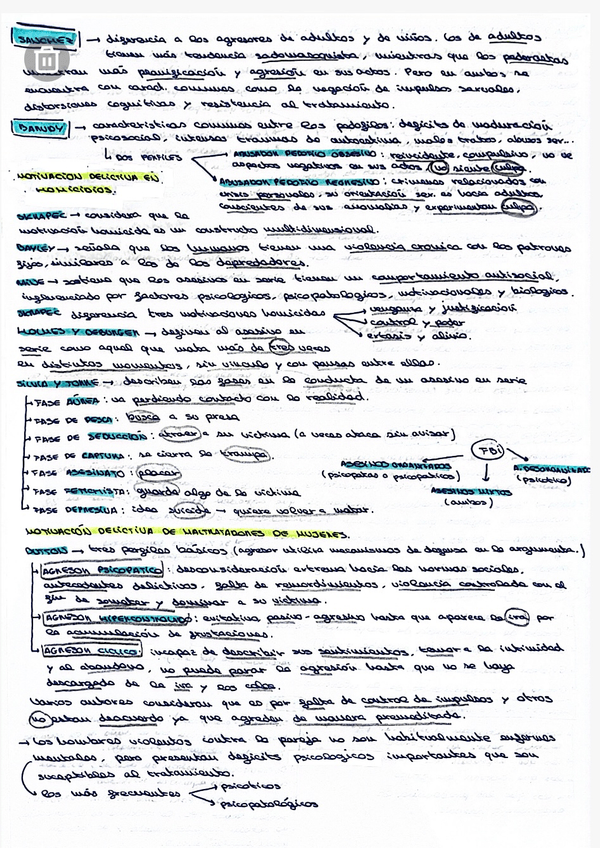 SANCHEZ → diferencia a los agresores de adultos y de niños. Los de adultos
tienen más tendencia sadomasoquista, mientras que los pederastas
muestran más planificación y agresión en sus actos. Pero en ambos se
encuentra con caract. comunes como la negación de impulsos sexuales,
distorsiones cognitivas y resistencia al tratamiento.
BARUDY → características comunes entre los pedofilos: deficits de maduración
psicosocial, intensos traumas de autoestima, malos tratos, abusos ser...
↳ DOS PERFILES
ABUSADOR PEDOFILO OBSESIVO: reincidente, compulsivo, no ve
aspectos negativos en sus actos, no siente culpa.
ABUSADOR PEDOFILO REGRESIVO: crímenes relacionados con
crisis personales, su orientación ser. es hacia adultos
conscientes de sus anomalías y experimentan culpa.
MOTIVACIÓN DELICTIVA EN
HOMICIDIOS.
SKRAPEC → considera que la
motivación homicida es un constructo multidimensional.
→ señala que los humanos tienen una violencia cronica con los patrones
fijos, similares a los de los depredadores.
→ sostiene que los asesinos en serie tienen un comportamiento antisocial,
influenciado por factores psicologicos, psicopatologicos, motivacionales y biologicos.
SKRAPEC diferencia tres motivaciones homicidas
venganza y justificación
control y poder
extasis y alivio.
HOLMES Y DEBURGER → definen al asesino en
serie como aquel que mata más de tres veces
en distintos momentos, sin vinculo y con pausas entre ellas.
SILVIA Y TORRE → describen las fases en la conducta de un asesino en serie
FASE AÚREA: va perdiendo contacto con la realidad.
FASE DE PESCA: busca a su presa
FASE DE SEDUCCIÓN: atraer a su victima (a veces ataca sin avisar)
FASE DE CAPTURA: se cierra la trampa.
FASE ASESINATO: placer
FASE FETICHISTA: guarda algo de la victima
FASE DEPRESIVA: idea suicida → quiere volver a matar.
FBI
ASESINO ORGANIZADOS
(psicopatas o psicopaticos)
ASESINOS MIXTOS
(ambos)
A. DESORGANIZADO
(psicotico)
MOTIVACIÓN DELICTIVA DE MALTRATADORES DE MUJERES.
DUTTON → tres perfiles básicos (agresor utiliza mecanismos de defensa en la argumenta.)
AGRESOR PSICOPATICO: desconsideración extrema hacia las normas sociales,
antecedentes delictivos, falta de remordimientos, violencia controlada con el
fin de someter y dominar a su victima.
AGRESOR HIPERCONTROLADO: evitativo pasivo-agresivo hasta que aparece la ira por
la acumulación de frustaciones.
AGRESOR CICLICO: incapaz de describir sus sentimientos, teme a la intimidad
y al abandono, no puede parar la agresión hasta que no se haya
descargado de la ira y los celos.
Varios autores consideran que es por falta de control de impulsos y otros
no estan deacuerdo ya que agreden de manera premeditada.
→ Los hombres violentos contra la pareja no son habitualmente enfermos
mentales, pero presentan deficits psicologicos importantes que son
suceptibles al tratamiento.
↳ los más frecuentes
psicoticos
psicopatológicos